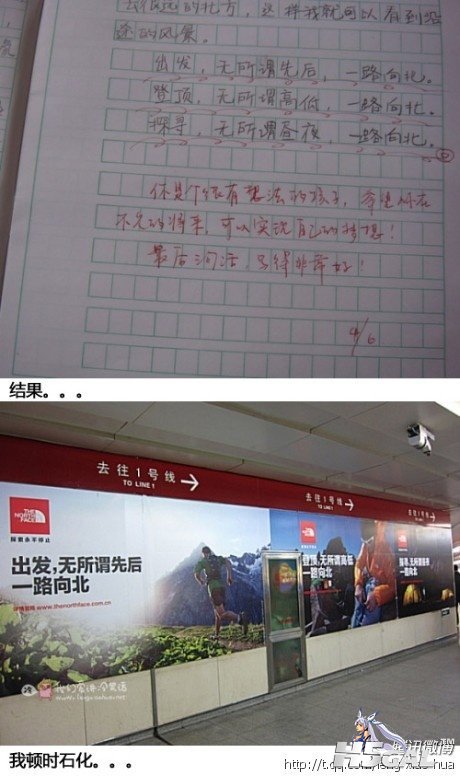 去很远的北方，这样我就可以看到沿
途的风景。
出发，无所谓先后，一路向北。
登顶，无所谓高低，一路向北。
探寻，无所谓昼夜，一路向北。
你是个很有想法的孩子，希望你在
不久的将来，可以实现自己的梦想！
最后的话，写得非常好！
4/6
结果。。。
去往1号线
TO LINE 1
去往1号线
TO LINE 1
去往1号线
THE NORTH FACE
探索永不停止
出发,无所谓先后
一路向北
详情登陆 www.thenorthface.com.cn
登顶,无所谓高低
一路向北
探寻,无所谓昼夜
一路向北
我们爱讲冷笑话
我顿时石化。。。
腾讯微博